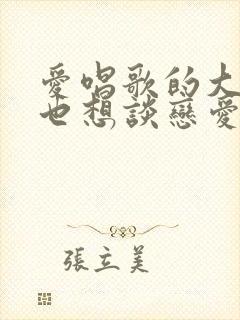 愛唱歌的大
也想談戀愛
張立美